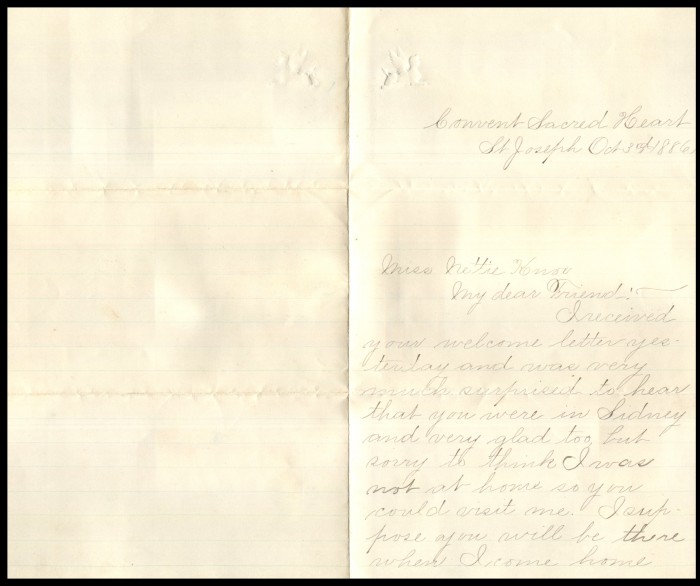 Convent Sacred Heart
St Joseph Oct 3rd 1886
Miss Nettie Knox
My dear Friend:
I received
your welcome letter yes-
terday and was very
much surprised to hear
that you were in Sidney
and very glad too but
sorry to think I was
not at home so you
could visit me. I sup-
pose you will be there
when I come home